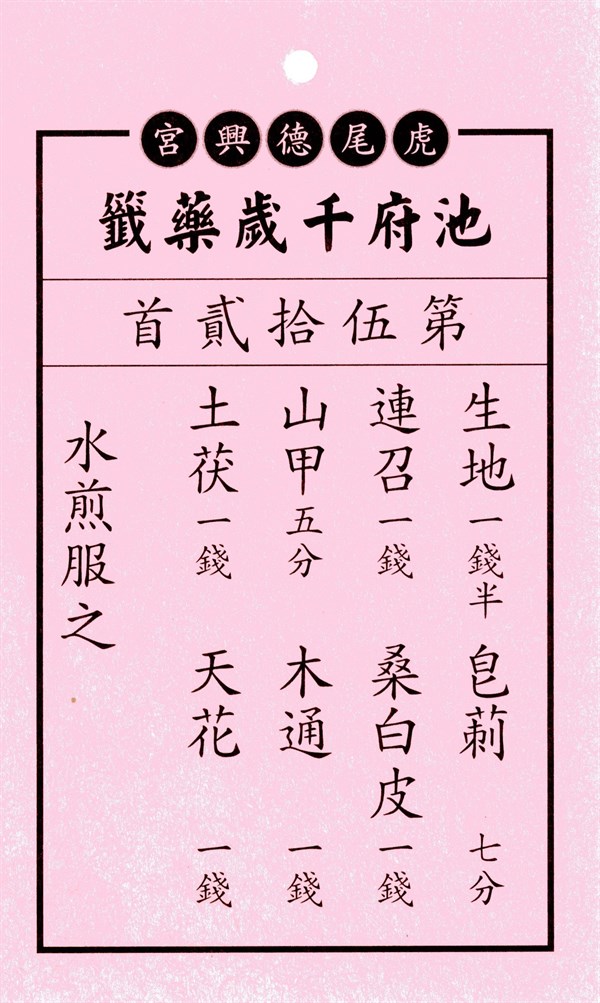 虎尾德興宮
池府千歲藥籤
第伍拾貳首
生地一錢半 皂莿七分
連召一錢 桑白皮一錢
山甲五分 木通一錢
土茯一錢 天花一錢
水煎服之